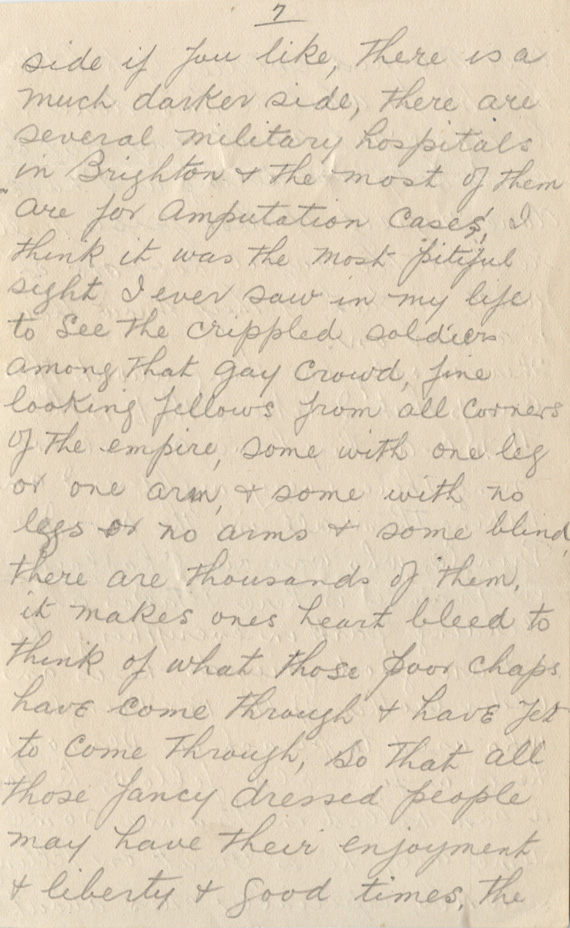 7
side if you like, there is a
much darker side, there are
several military hospitals
in Brighton & the most of them
are for Amputation Cases, I
think it was the most pitiful
sight I ever saw in my life
to See the crippled soldiers
among that gay Crowd, fine
looking fellows from all Corners
of the empire, some with one leg
or one arm, & some with no
legs or no arms & some blind,
there are thousands of them,
it makes ones heart bleed to
think of what those poor chaps
have come through & have yet
to Come Through, so that all
those fancy dressed people
may have their enjoyment
& liberty & good times, the